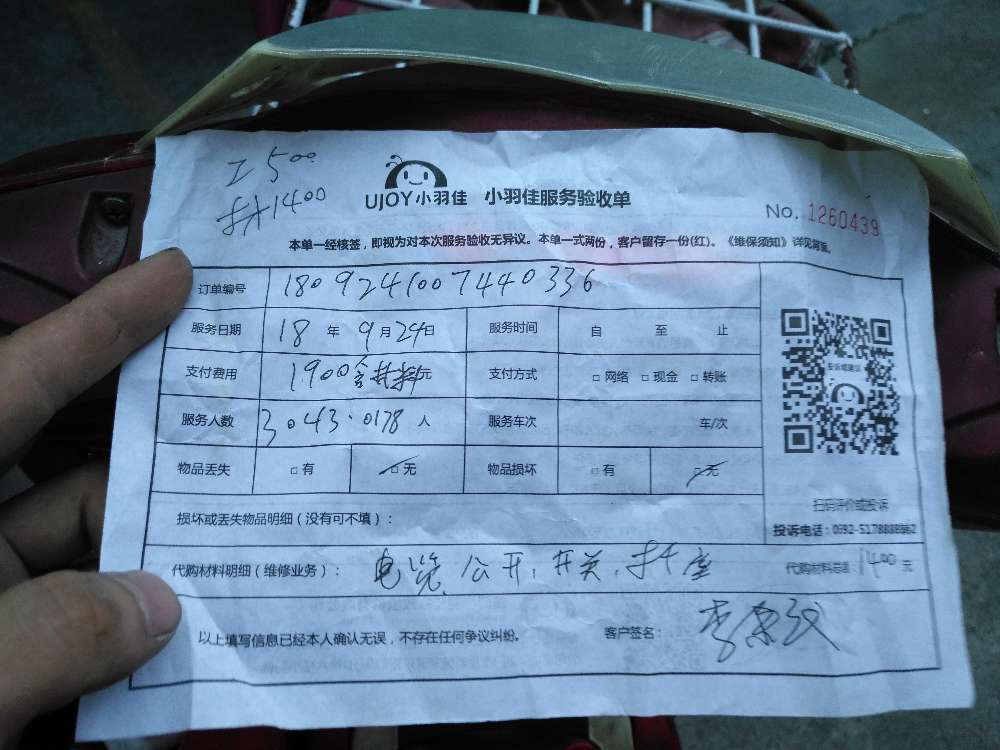 工500
材1400
UJOY小羽佳 小羽佳服务验收单
No. 1260439
本单一经核签，即视为对本次服务验收无异议。本单一式两份，客户留存一份(红)。《维保须知》详见背面。
订单编号 1809241007440336
服务日期 18 年 9月 24日 服务时间 自 至 止
支付费用 1900含材料元 支付方式 □ 网络 □ 现金 □ 转账
服务人数 3043·0178 人 服务车次 车/次
物品丢失 □ 有 □ 无 物品损坏 □ 有 □ 无
投诉或建议
扫码评价或投诉
损坏或丢失物品明细（没有可不填）：
投诉电话：0592-
代购材料明细（维修业务）： 电览 公开，开关，插座 代购材料总额：1400元
以上填写信息已经本人确认无误，不存在任何争议纠纷。 客户签名：